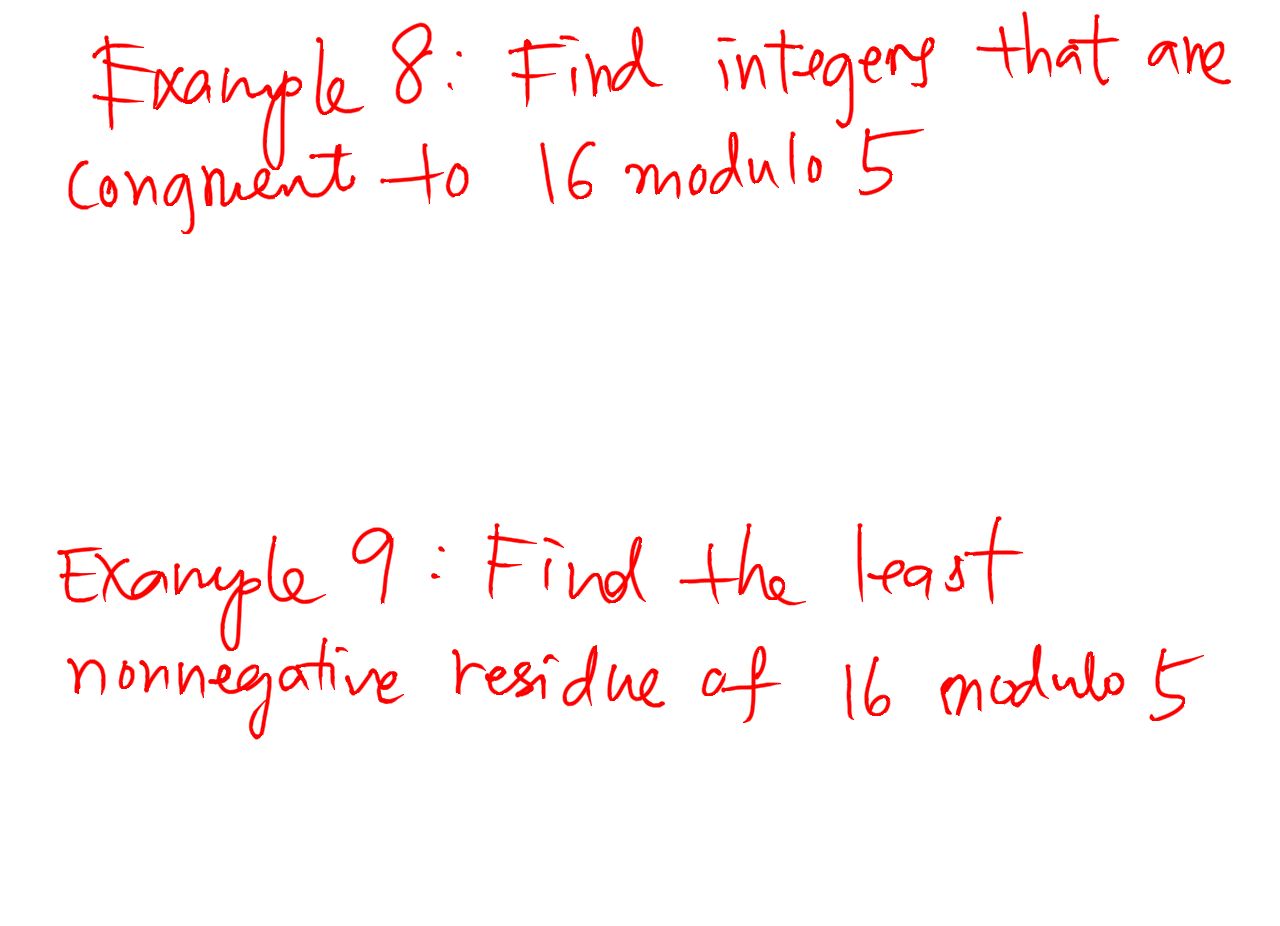 Example 8: Find integers that are
congruent to 16 modulo 5
Example 9: Find the least
nonnegative residue of 16 modulo 5